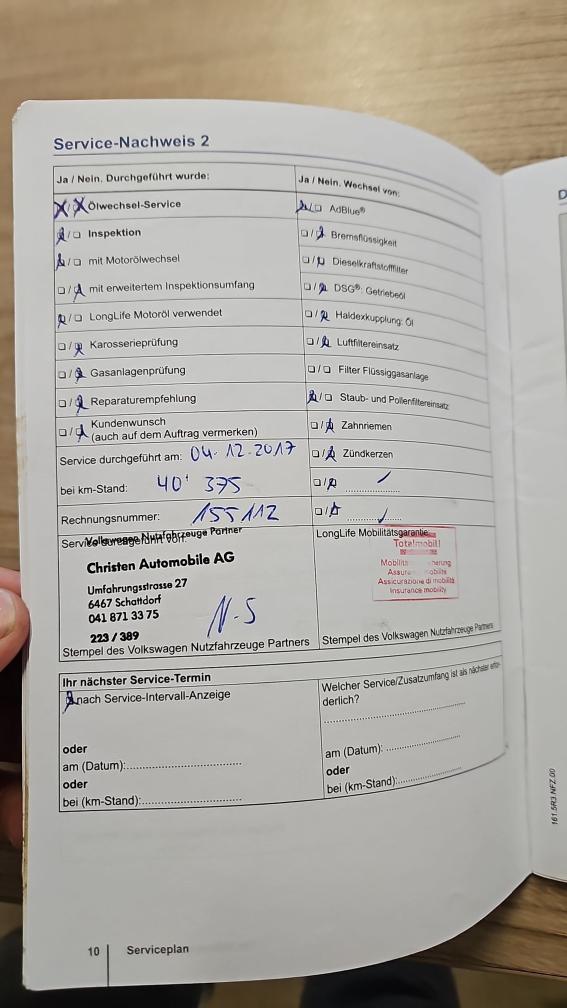 Service-Nachweis 2
Ja / Nein. Durchgeführt wurde:
Ölwechsel-Service
Inspektion
mit Motorölwechsel
mit erweitertem Inspektionsumfang
LongLife Motoröl verwendet
Karosserieprüfung
Gasanlagenprüfung
Reparaturempfehlung
Kundenwunsch
(auch auf dem Auftrag vermerken)
Service durchgeführt am: 04.12.2017
bei km-Stand: 40' 375
Rechnungsnummer: 155112
Ja / Nein. Wechsel von:
AdBlue®
Bremsflüssigkeit
Dieselkraftstofffilter
DSG®: Getriebeöl
Haldexkupplung: Öl
Luftfiltereinsatz
Filter Flüssiggasanlage
Staub- und Pollenfiltereinsatz
Zahnriemen
Zündkerzen
Service durchgeführt von:
Volkswagen Nutzfahrzeuge Partner
Christen Automobile AG
Umfahrungsstrasse 27
6467 Schattdorf
041 871 33 75
223 / 389
N-S
Stempel des Volkswagen Nutzfahrzeuge Partners
LongLife Mobilitätsgarantie:
Totalmobil!
Assicurazione di mobilità
Insurance mobility
Stempel des Volkswagen Nutzfahrzeuge Partners
Ihr nächster Service-Termin
nach Service-Intervall-Anzeige
oder
am (Datum):
oder
bei (km-Stand):
Welcher Service/Zusatzumfang ist als nächster erfor-
derlich?
am (Datum):
oder
bei (km-Stand):
10 Serviceplan
161.5R3.NFZ.00
D